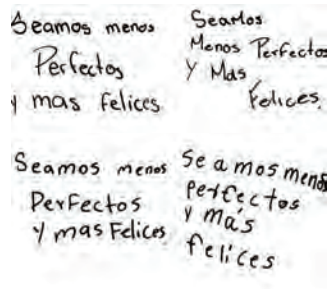 Seamos menos
Perfectos
y mas Felices
Seamos
Menos Perfectos
Y Mas
Felices.
Seamos menos
PerFectos
y mas Felices
Seamos menos
perfectos
y más
felices